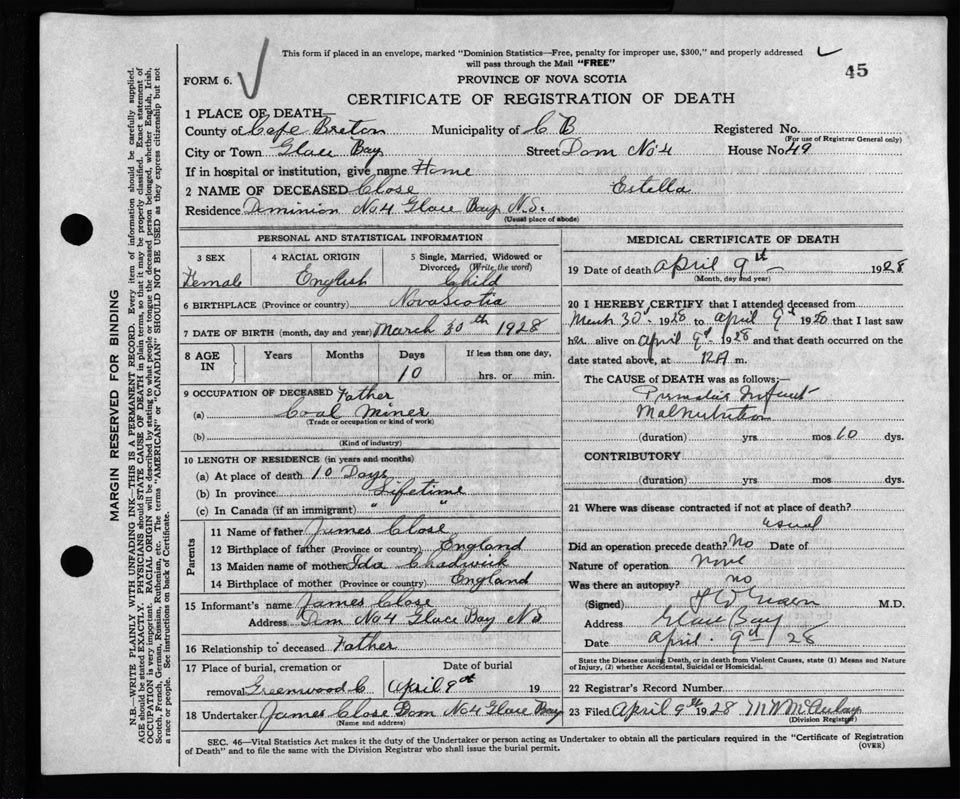 This form if placed in an envelope, marked "Dominion Statistics—Free, penalty for improper use, $300," and properly addressed
will pass through the Mail "FREE"
45
FORM 6.
PROVINCE OF NOVA SCOTIA
CERTIFICATE OF REGISTRATION OF DEATH
1 PLACE OF DEATH—
County of Cape Breton Municipality of C B Registered No.
(For use of Registrar General only)
City or Town Glace Bay Street Dom No 4 House No. 49
If in hospital or institution, give name Home
2 NAME OF DECEASED Close Estella
Residence Dominion No 4 Glace Bay N.S.
(Usual place of abode)
PERSONAL AND STATISTICAL INFORMATION
3 SEX 4 RACIAL ORIGIN 5 Single, Married, Widowed or
Divorced, (Write the word)
Female English Child
6 BIRTHPLACE (Province or country) Nova Scotia
7 DATE OF BIRTH (month, day and year) March 30th 1928
8 AGE IN Years Months Days If less than one day,
10 hrs. or min.
9 OCCUPATION OF DECEASED Father
(a) Coal Miner
(Trade or occupation or kind of work)
(b)
(Kind of industry)
10 LENGTH OF RESIDENCE (in years and months)
(a) At place of death 10 Days
(b) In province Lifetime
(c) In Canada (if an immigrant) " "
Parents
11 Name of father James Close
12 Birthplace of father (Province or country) England
13 Maiden name of mother Ida Chadwick
14 Birthplace of mother (Province or country) England
15 Informant's name James Close
Address Dom No 4 Glace Bay NS
16 Relationship to deceased Father
17 Place of burial, cremation or Date of burial
removal Greenwood C April 9th 19
18 Undertaker James Close Dom No 4 Glace Bay
(Name and address)
MEDICAL CERTIFICATE OF DEATH
19 Date of death April 9th 1928
(Month, day and year)
20 I HEREBY CERTIFY that I attended deceased from
30 1928 to April 9 1928 that I last saw
her alive on April 9 1928 and that death occurred on the
date stated above, at 12 A m.
The CAUSE of DEATH was as follows:—
Infant
Malnutrition
(duration) yrs mos 10 dys.
CONTRIBUTORY
(duration) yrs mos dys.
21 Where was disease contracted if not at place of death?
usual
Did an operation precede death? No Date of
Nature of operation None
Was there an autopsy? no
(Signed) M.D.
Address Glace Bay
Date April 9 / 28
State the Disease causing Death, or in death from Violent Causes, state (1) Means and Nature
of Injury, (2) whether Accidental, Suicidal or Homicidal.
22 Registrar's Record Number
23 Filed April 9th 1928
(Division Registrar)
SEC. 46—Vital Statistics Act makes it the duty of the Undertaker or person acting as Undertaker to obtain all the particulars required in the "Certificate of Registration
of Death" and to file the same with the Division Registrar who shall issue the burial permit.
(OVER)
MARGIN RESERVED FOR BINDING
N.B.—WRITE PLAINLY WITH UNFADING INK—THIS IS A PERMANENT RECORD. Every item of information should be carefully supplied.
AGE should be stated EXACTLY. PHYSICIANS should STATE CAUSE OF DEATH in plain terms, so that it may be properly classified. Exact statement of
OCCUPATION is very important. RACIAL ORIGIN will be described by stating to what people or tongue the deceased person belonged, whether English, Irish,
Scotch, French, German, Russian, Ruthenian, etc. The terms "AMERICAN" or "CANADIAN" SHOULD NOT BE USED as they express citizenship but not
a race or people. See instructions on back of Certificate.